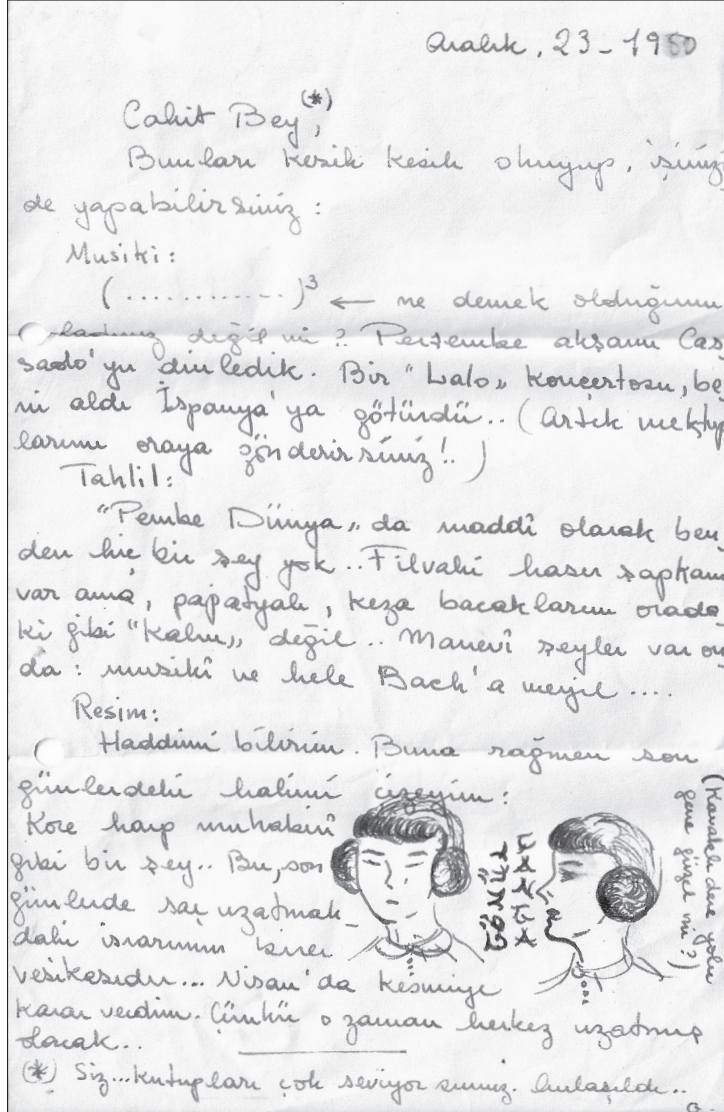 Aralık, 23-1950
Cahit Bey(*),
Bunları kesik kesik okuyup, işinizi
de yapabilirsiniz :
Musiki:
(............)³ ← ne demek olduğunu
değil mi ? Perşembe akşamı Cas
sado'yu dinledik. Bir "Lalo„ konçertosu, be
ni aldı İspanya'ya götürdü.. (Artık mektup
larımı oraya gönderirsiniz!..)
Tahlil:
"Pembe Dünya„ da maddî olarak ben
den hiç bir şey yok.. Filvaki hasır şapkam
var ama, papatyalı, keza bacaklarım orada
ki gibi "Kalın„ değil.. Manevî şeyler var on
da : musikî ve hele Bach'a meyil ....
Resim:
Haddimi bilirim. Buna rağmen son
günlerdeki halimi çizeyim :
Kore harp muhabiri
gibi bir şey.. Bu, son
günlerde saç uzatmak-
daki ısrarımın birer
vesikasıdır... Nisan'da kesmiye
karar verdim. Çünkü o zaman herkez uzatmış
olacak..
(Kavaklıdere yolu
gene güzel mi?)
(*) Siz...kutupları çok seviyorsunuz. Anlaşıldı..
G